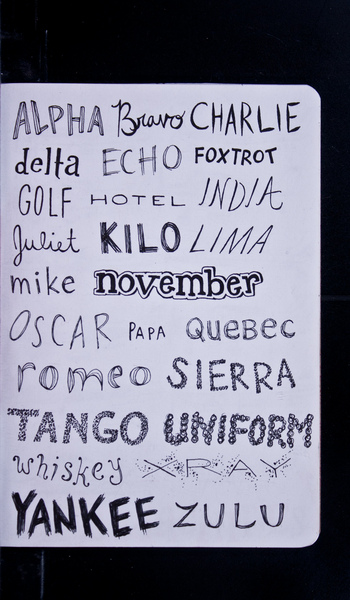 ALPHA Bravo CHARLIE
delta ECHO FOXTROT
GOLF HOTEL INDIA
Juliet KILO LIMA
mike november
OSCAR PAPA QUEBEC
romeo SIERRA
TANGO UNIFORM
whiskey XRAY
YANKEE ZULU